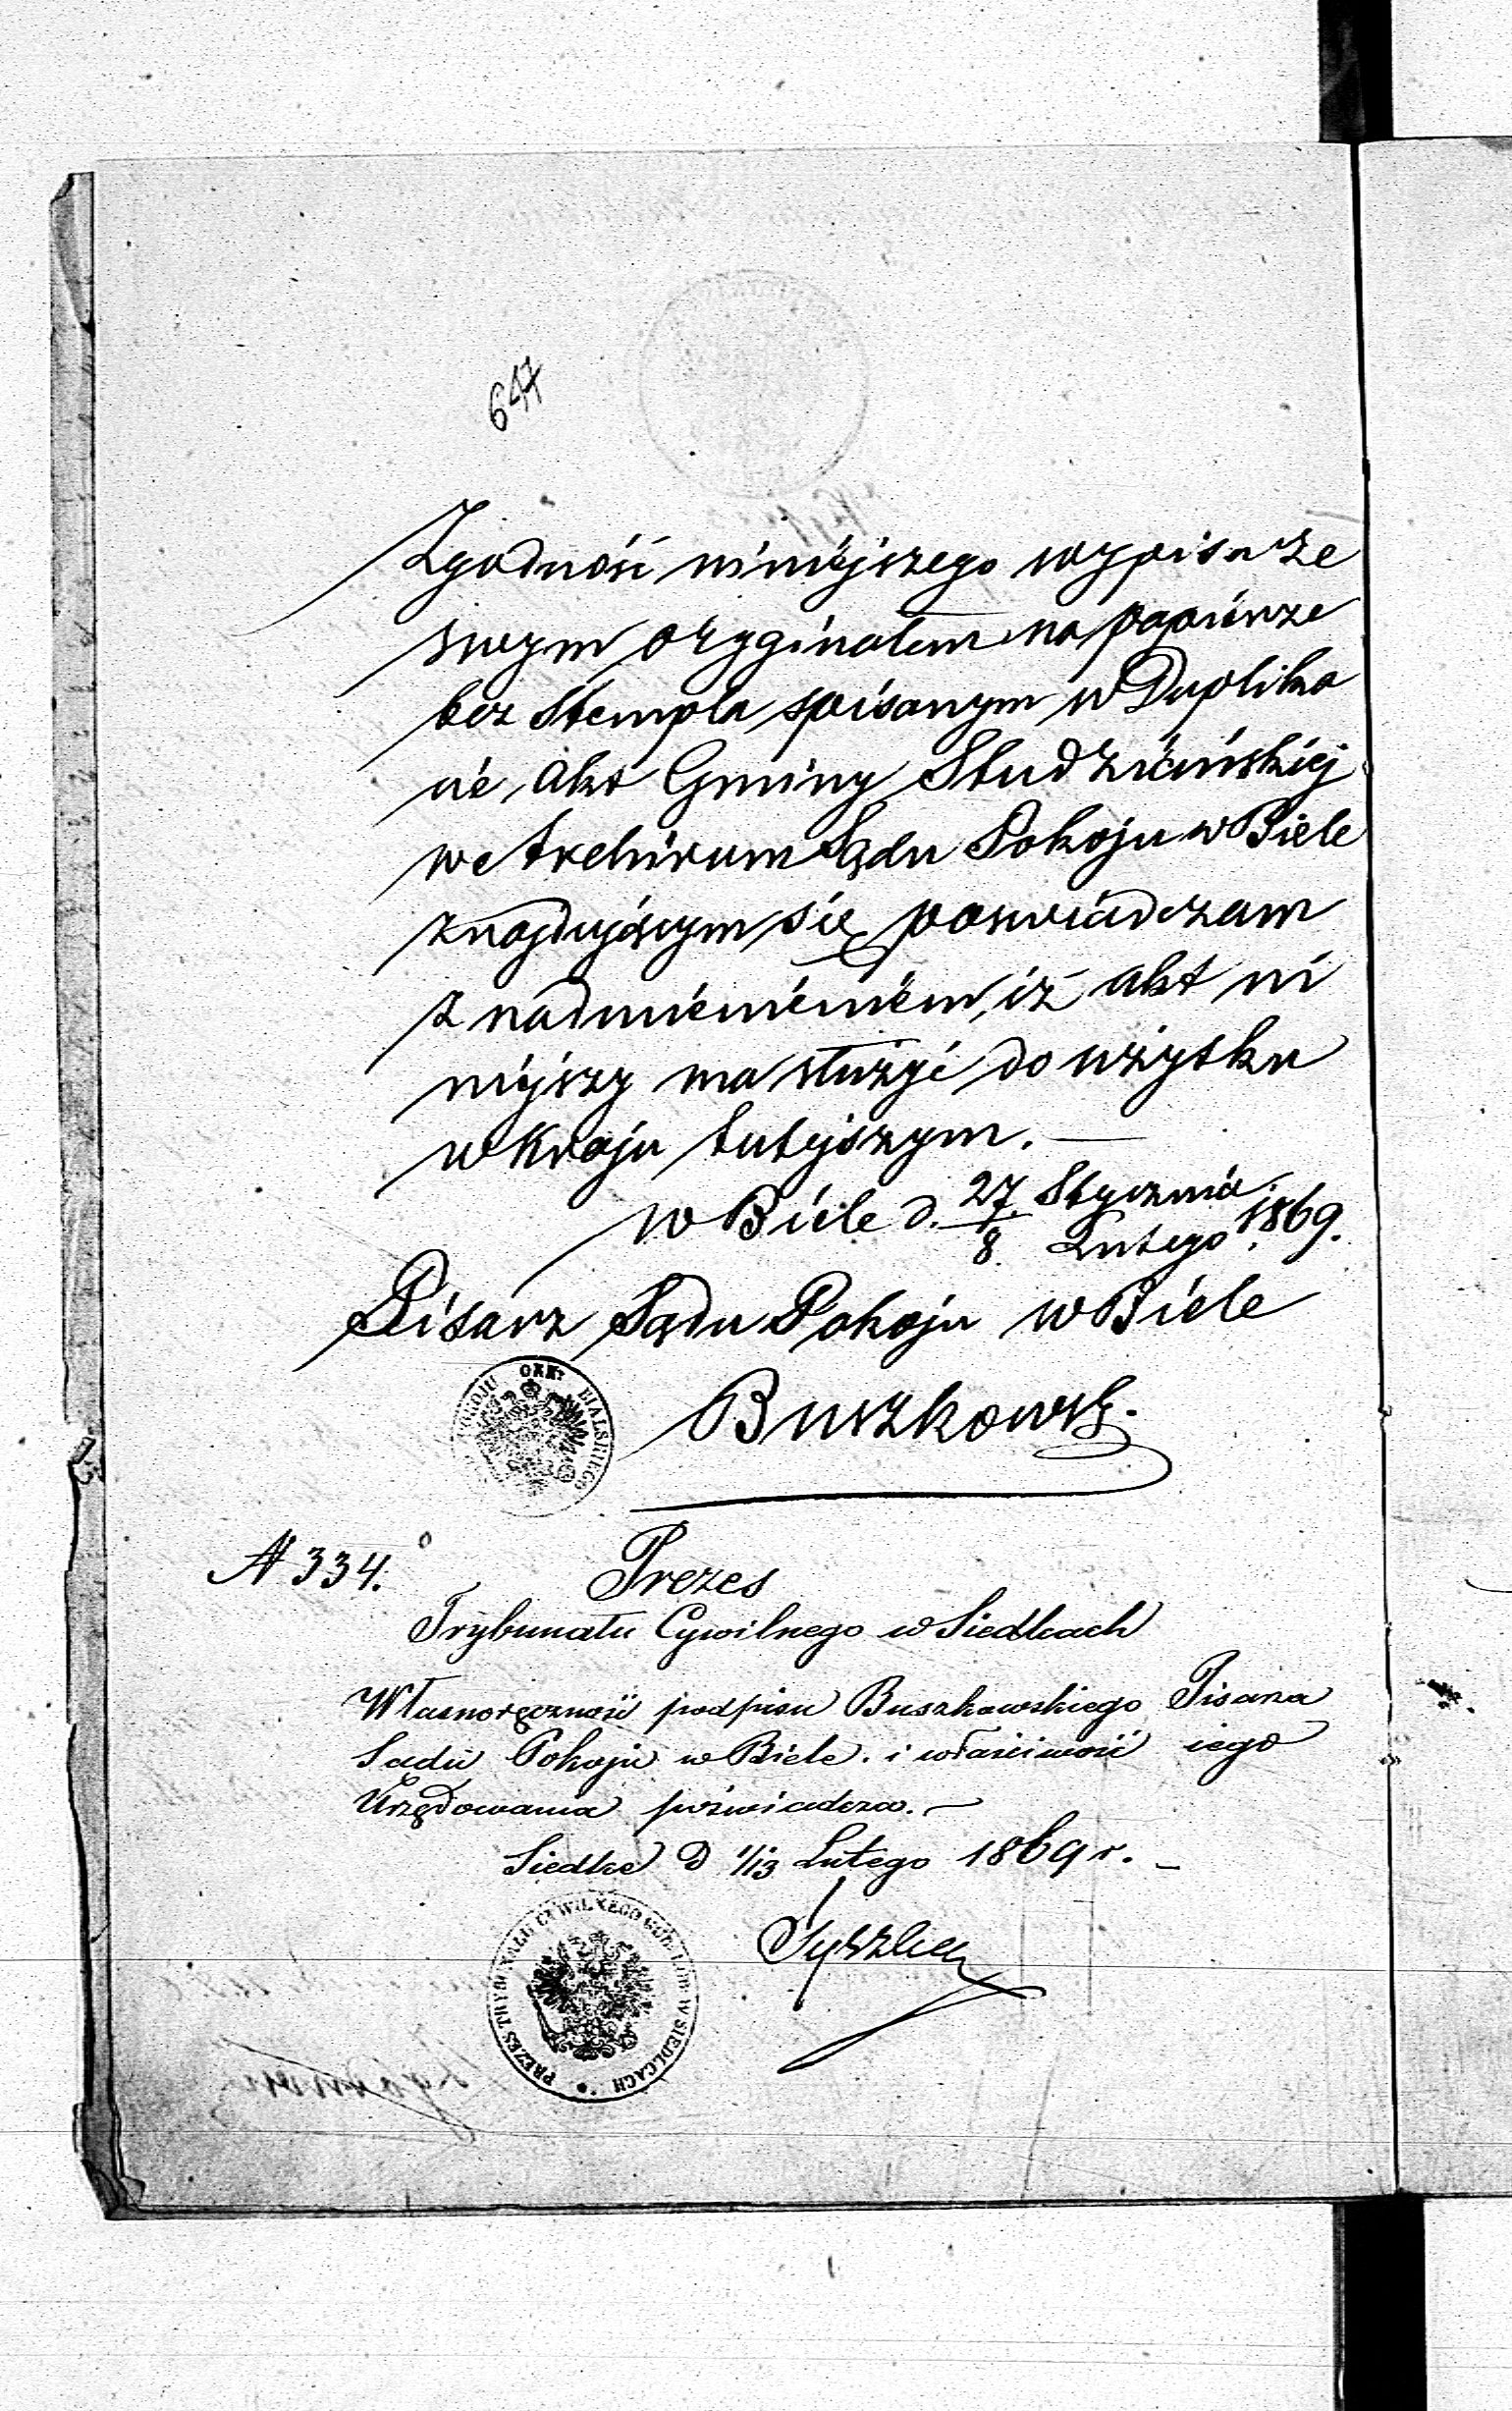 647
Zgodność niniéjszego wypisu ze
swym oryginałem na papiérze
bez Stempla spisanym w Duplika
cie Akt Gminy Studziéńskiéj
we Archiwum Sądu Pokoju w Biele
znajdującym się poswiadczam
z nadmieniéniém, iż akt ni
niéjszy ma służyć do użytku
w Kraju tutéjszym. —
w Biele d. 27/8 Stycznia/Lutego 1869.
Pisarz Sądu Pokoju w Biele
POKOJU OKR: BIALSKIEGO
Buszkowsk.
N 334.
Prezes
Trybunału Cywilnego w Siedlcach
Własnoręczność podpisu Buszkowskiego Pisarza
Sadu Pokoju w Biele. i właściwość iego
Urzędowania poświadcza. —
Siedlce D 1/13 Lutego 1869 r. —
PREZES TRYBUNAŁU CYWILNEGO GUB: LUB: W SIEDLCACH